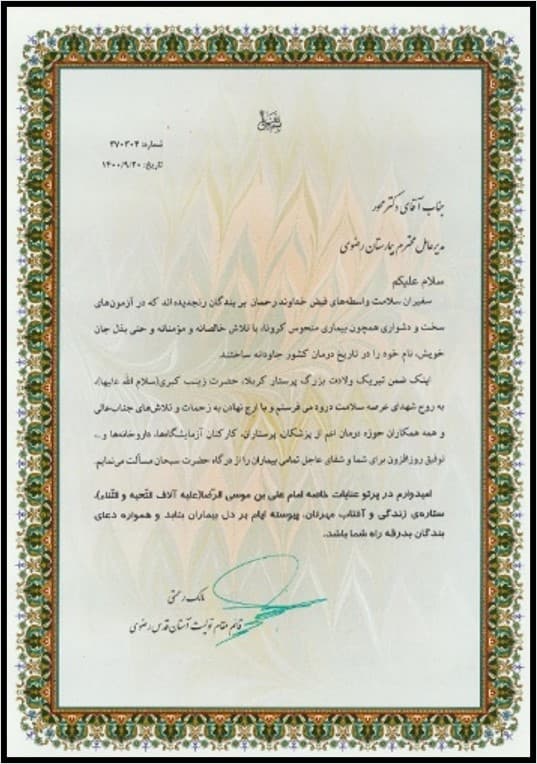 بسمه تعالی
شماره: ۳۷۰۳۰۴
تاریخ: ۱۴۰۰/۹/۲۰
جناب آقای دکتر محور
مدیرعامل محترم بیمارستان رضوی
سلام علیکم
سفیران سلامت واسطه‌های فیض خداوند رحمان بر بندگان رنجدیده‌اند که در آزمون‌های
سخت و دشواری همچون بیماری منحوس کرونا، با تلاش خالصانه و مؤمنانه و حتی بذل جان
خویش، نام خود را در تاریخ درمان کشور جاودانه ساختند.
اینک ضمن تبریک ولادت بزرگ پرستار کربلا، حضرت زینب کبری(سلام الله علیها)،
به روح شهدای عرصه سلامت درود می فرستم و با ارج نهادن به زحمات و تلاش‌های جنابعالی
و همه همکاران حوزه درمان اعم از پزشکان، پرستاران، کارکنان آزمایشگاه‌ها، داروخانه‌ها و...
توفیق روزافزون برای شما و شفای عاجل تمامی بیماران را از درگاه حضرت سبحان مسألت می‌نمایم.
امیدوارم در پرتو عنایات خاصه امام علی بن موسی الرّضا(علیه آلاف التّحیه و الثّناء)،
ستاره‌ی زندگی و آفتاب مهرتان، پیوسته ایام بر دل بیماران بتابد و همواره دعای
بندگان بدرقه راه شما باشد.
مالک رحمتی
قائم مقام تولیت آستان قدس رضوی